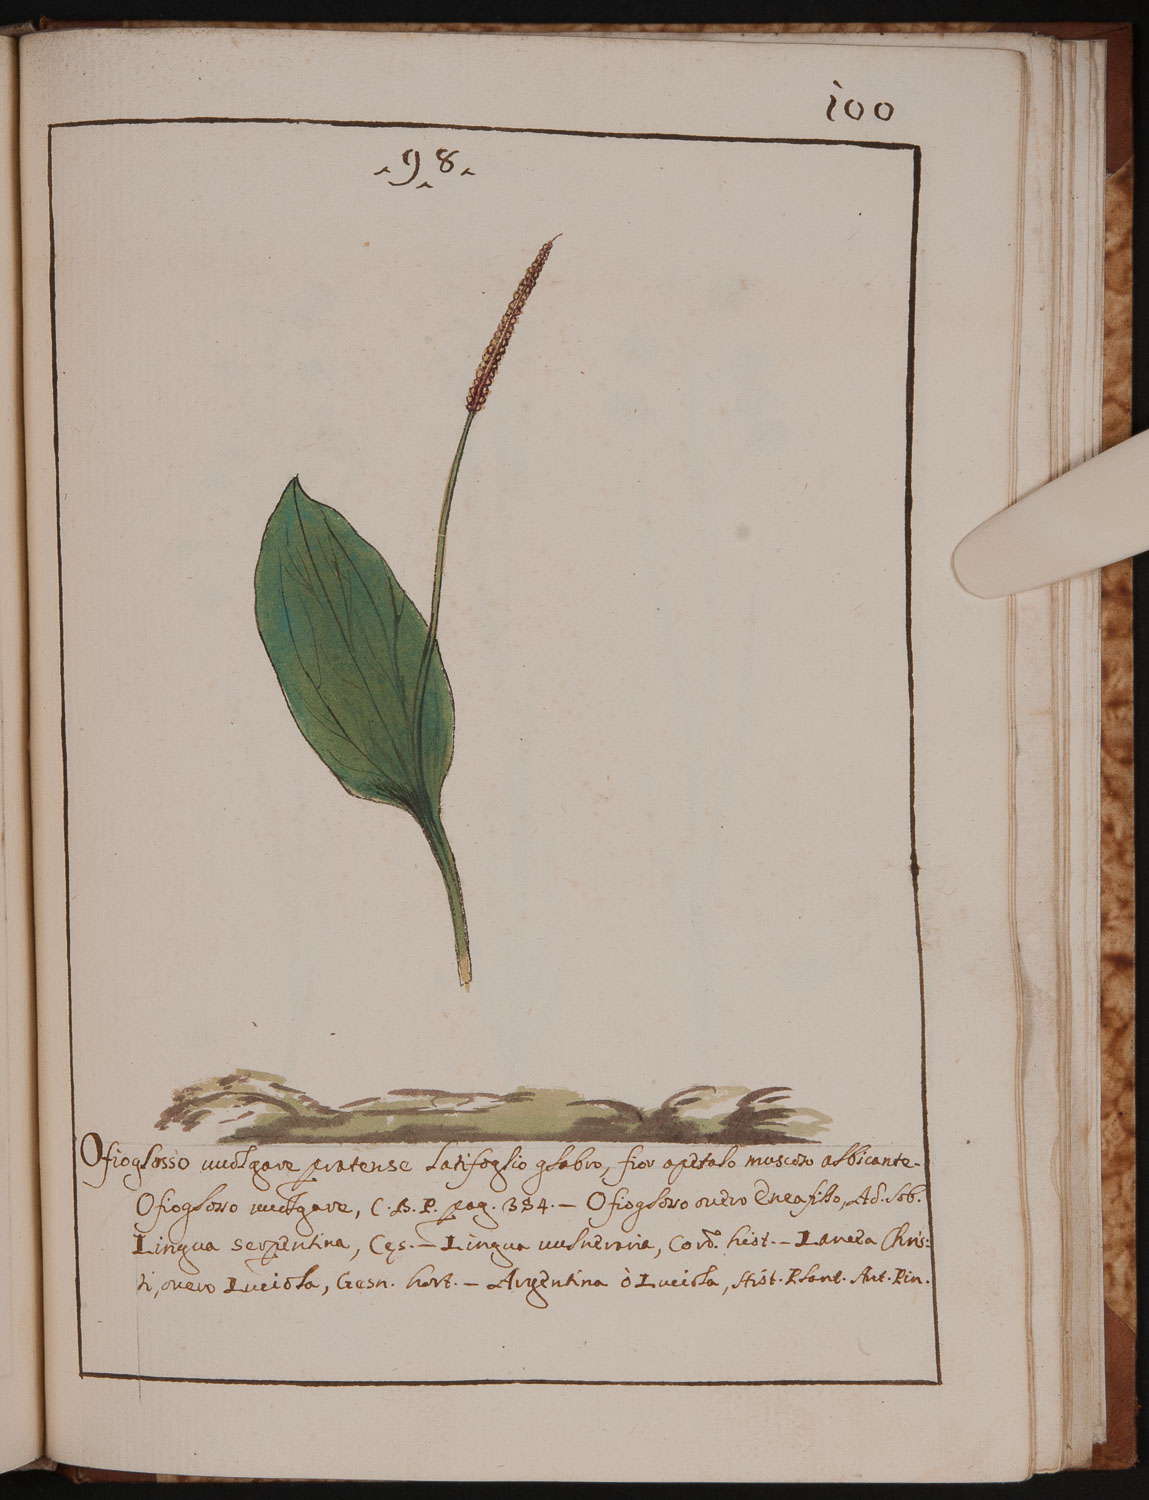 100
98.
Ofioglosso uuolgare pratense latifoglio glabro, fior apetalo muscoso albicante.
Ofioglosso uuolgare, C. B. P. pag. 354. – Ofioglosso ouero Eneafillo, Ad. Lob.
Lingua serpentina, Cęs. – Lingua uulneraria, Cord. hist. – Lancea Chris:
ti, ouero Luciola, Gesn. hort. – Argentina ò Luciola, Hist. Plant. Ant. Pin.